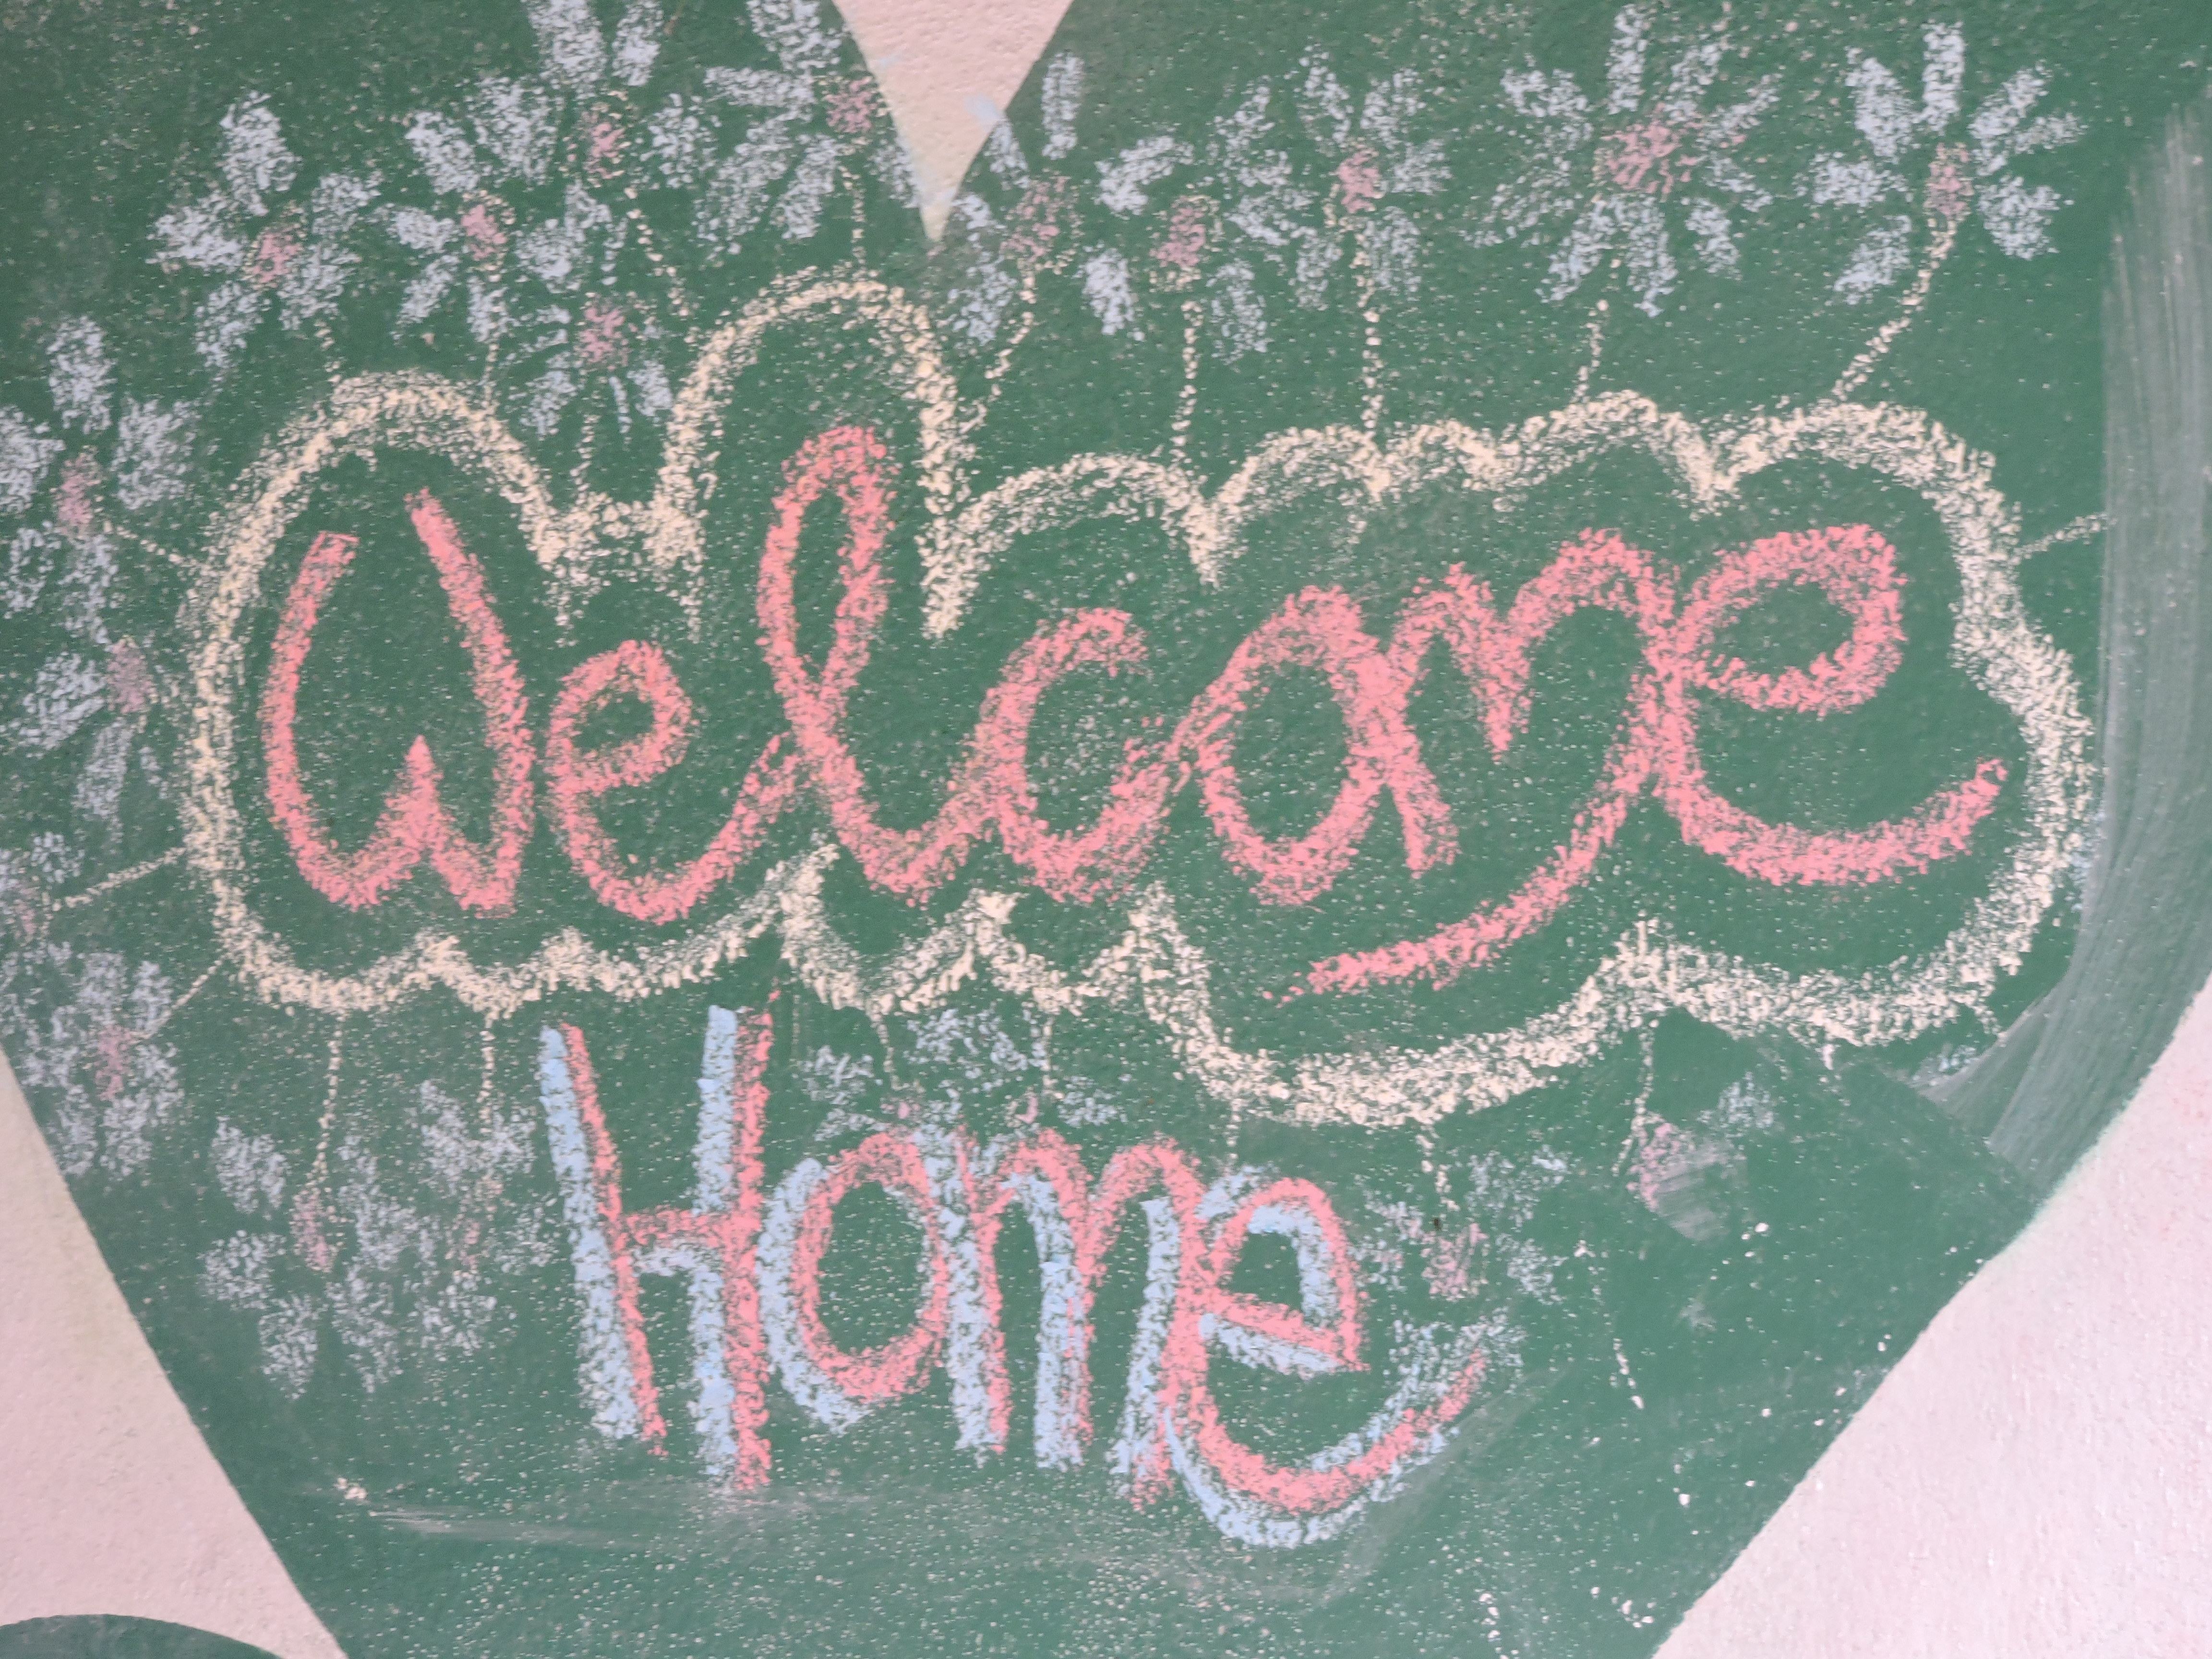 Welcome
Home